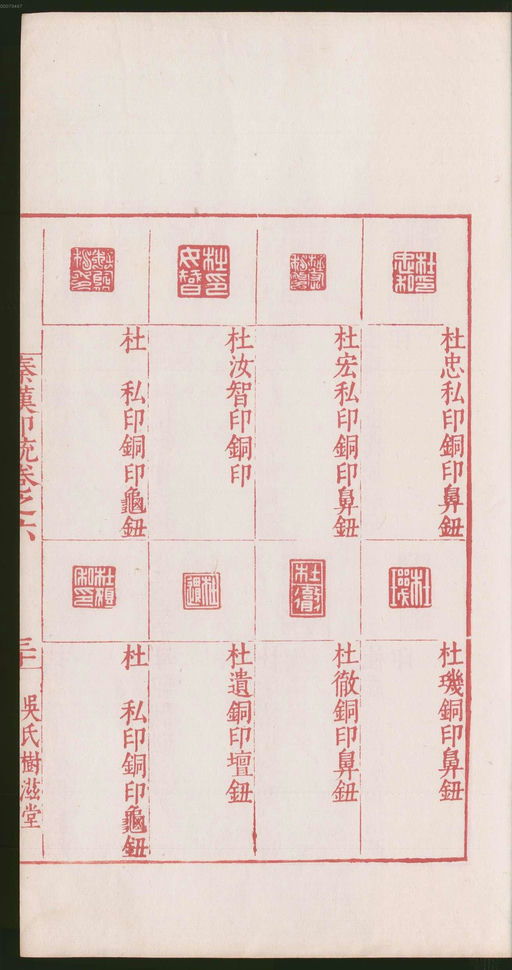 杜忠私印銅印鼻鈕
杜宏私印銅印鼻鈕
杜汝智印銅印
杜　私印銅印龜鈕
杜璣銅印鼻鈕
杜徹銅印鼻鈕
杜遺銅印壇鈕
杜　私印銅印龜鈕
秦漢印統卷之六
吳氏樹滋堂
00073447